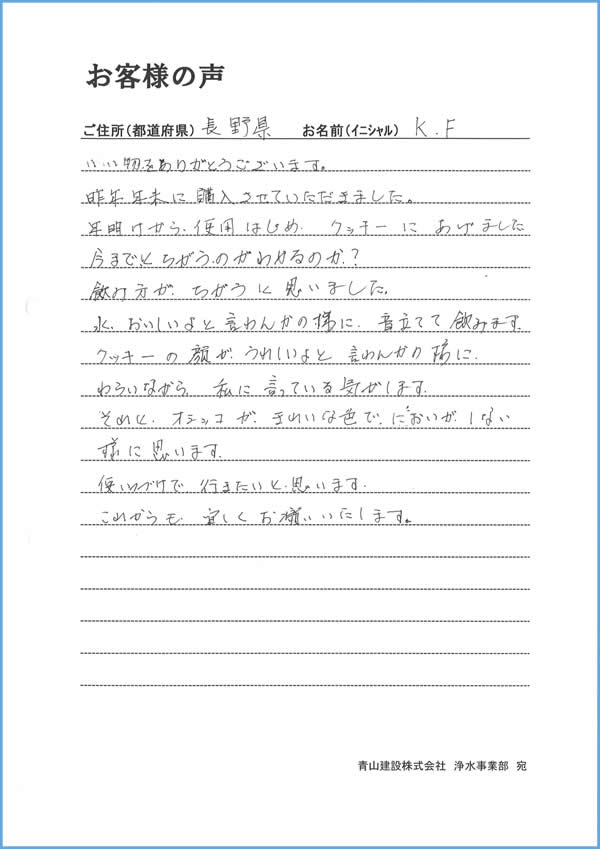 お客様の声
ご住所(都道府県) 長野県 お名前(イニシャル) K.F
いい物をありがとうございます。
昨年年末に購入させていただきました。
年明けから、使用はじめ、クッキーにあげました
今までとちがうのがわかるのか?
飲み方が、ちがうと思いました。
水、おいしいよと言わんかの様に、音立てて飲みます。
クッキーの顔が、うれしいよと言わんかの様に、
わらいながら、私に言っている気がします。
それと、オシッコが、きれいな色で、においが、しない
様に思います。
使いつづけて行きたいと、思います。
これからも、宜しくお願いいたします。
青山建設株式会社 浄水事業部 宛